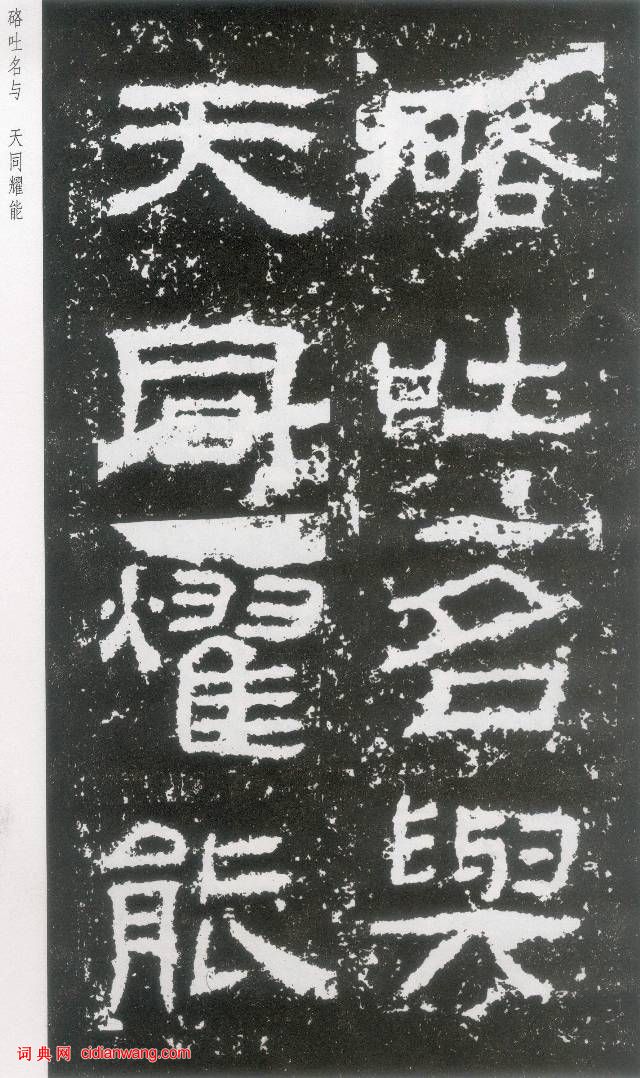 硌吐名與
天同燿能
硌吐名与 天同耀能
词典网 cidianwang.com